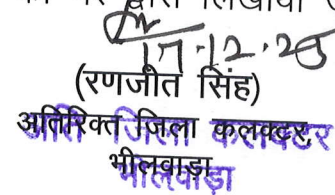 17.12.25
(रणजीत सिंह)
अतिरिक्त जिला कलक्टर,
भीलवाड़ा